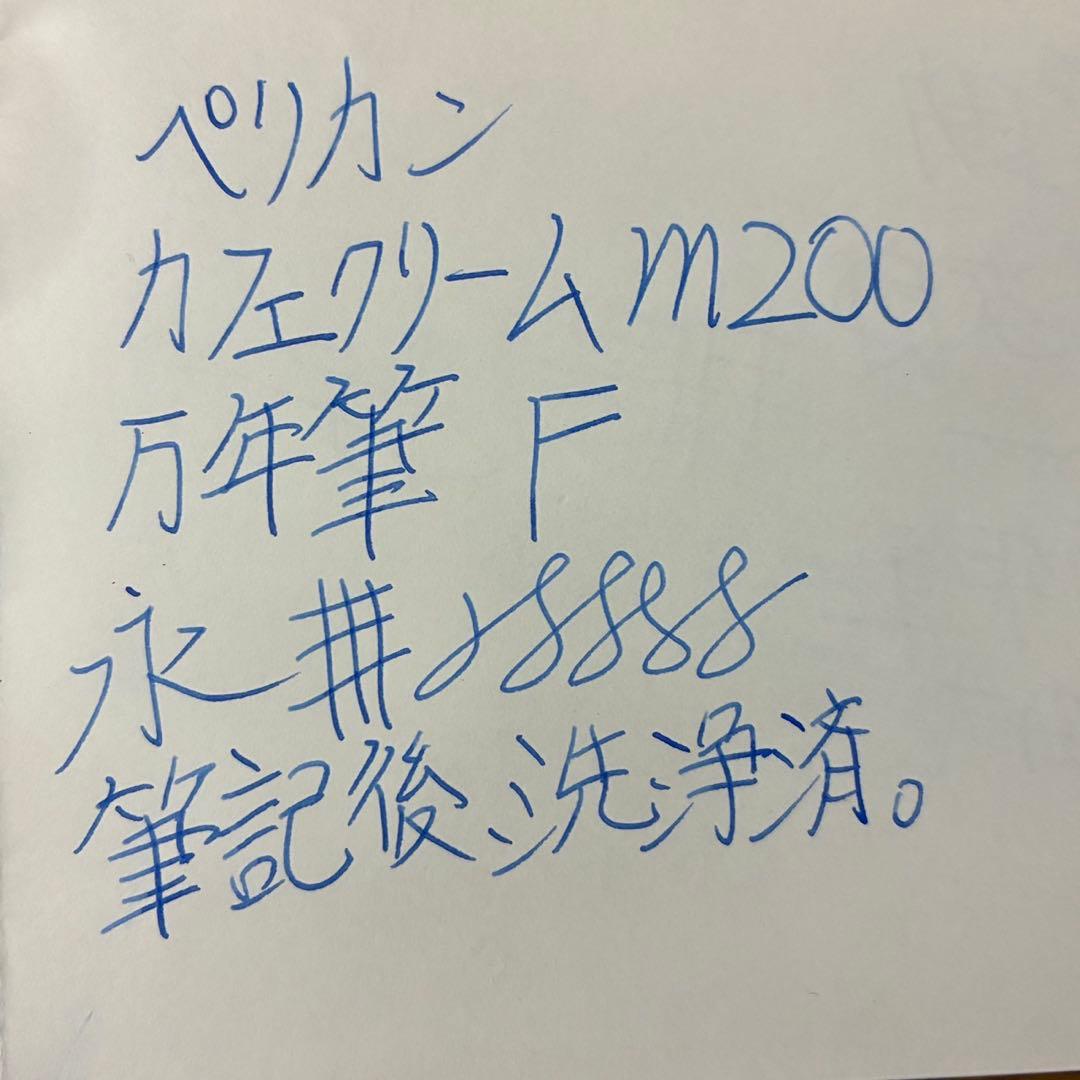 ペリカン
カフェクリームm200
万年筆 F
永
筆記後洗浄済。